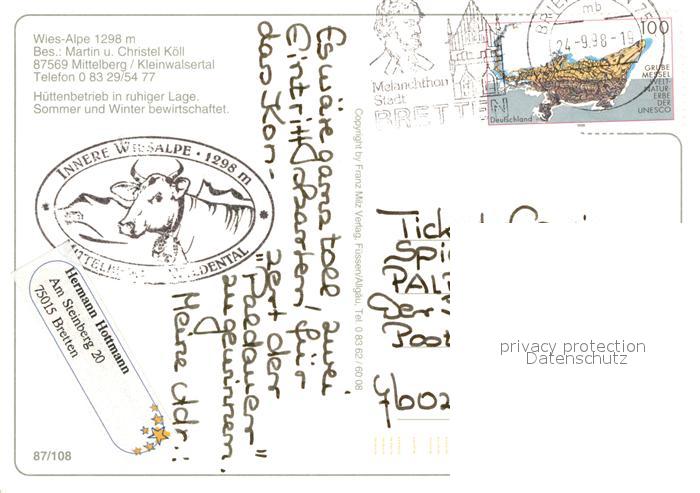 Wies-Alpe 1298 m
Bes.: Martin u. Christel Köll
87569 Mittelberg / Kleinwalsertal
Telefon 0 83 29/54 77
Hüttenbetrieb in ruhiger Lage.
Sommer und Winter bewirtschaftet.
INNERE WIESALPE · 1298 m
MITTELBERG
Hermann Hottmann
Am Steinberg 20
75015 Bretten
87/108
Es wäre ganz toll zwei
Eintrittskarten für
das Kon-
zert der
"Paldauer"
zu gewinnen.
Meine Adr.:
Copyright by Franz Milz Verlag, Füssen/Allgäu, Tel. 0 83 62 / 60 08
Melanchthon
Stadt
BRETTEN
mb
24-9.98-19
100
GRUBE
MESSEL
WELT-
NATUR-
ERBE
DER
UNESCO
Deutschland
Tick
Spi
PAL
Der
Post
privacy protection
Datenschutz